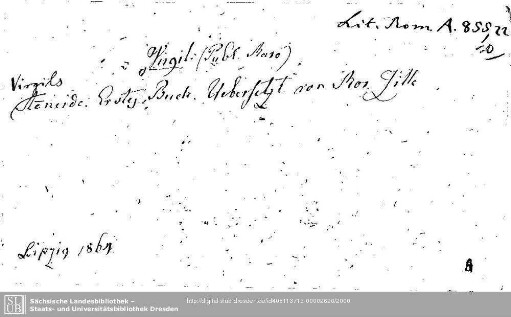 Lit. Rom. A. 855,22
Virgil: (Publ. Maro)
Virgils
Aeneide. Erstes Buch. Uebersetzt von Mor. Zille
Leipzig 1864
Sächsische Landesbibliothek –
Staats- und Universitätsbibliothek Dresden